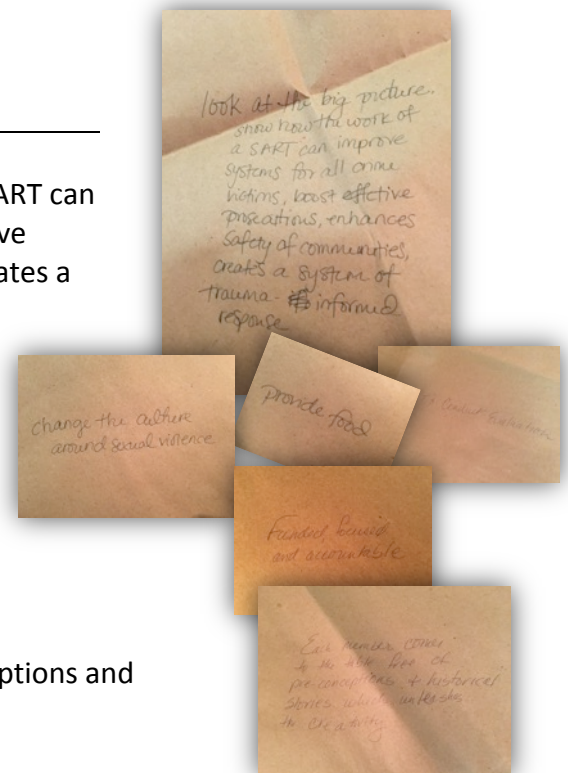 ART can
ve
ates a
ptions and
look at the big picture.
show how the work of
a SART can improve
systems for all crime
victims, boost effective
prosecutions, enhances
safety of communities,
creates a system of
trauma- informed
response
change the culture
around sexual violence
provide food
Conduct Evaluations
Funded, focused
and accountable
Each member comes
to the table free of
pre-conceptions + historical
stories which unleashes
the creativity